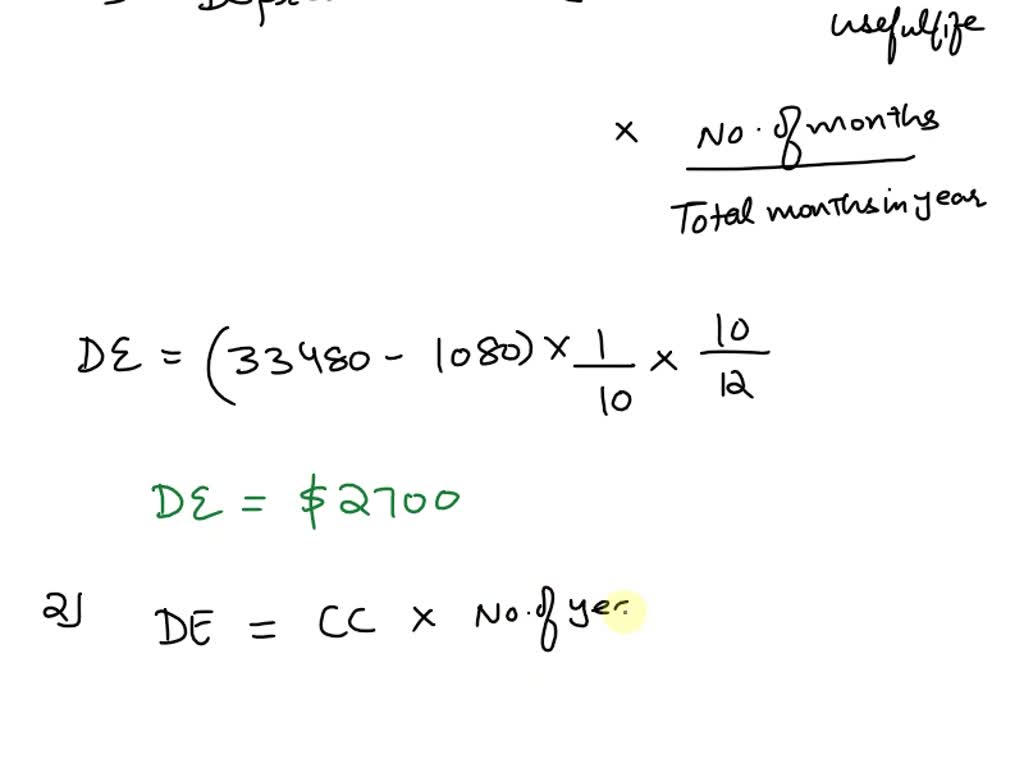 usefullife
× No. of months
Total months in year
DE = (33480 - 1080) × 1/10 × 10/12
DE = $2700
2) DE = CC × No. of yea